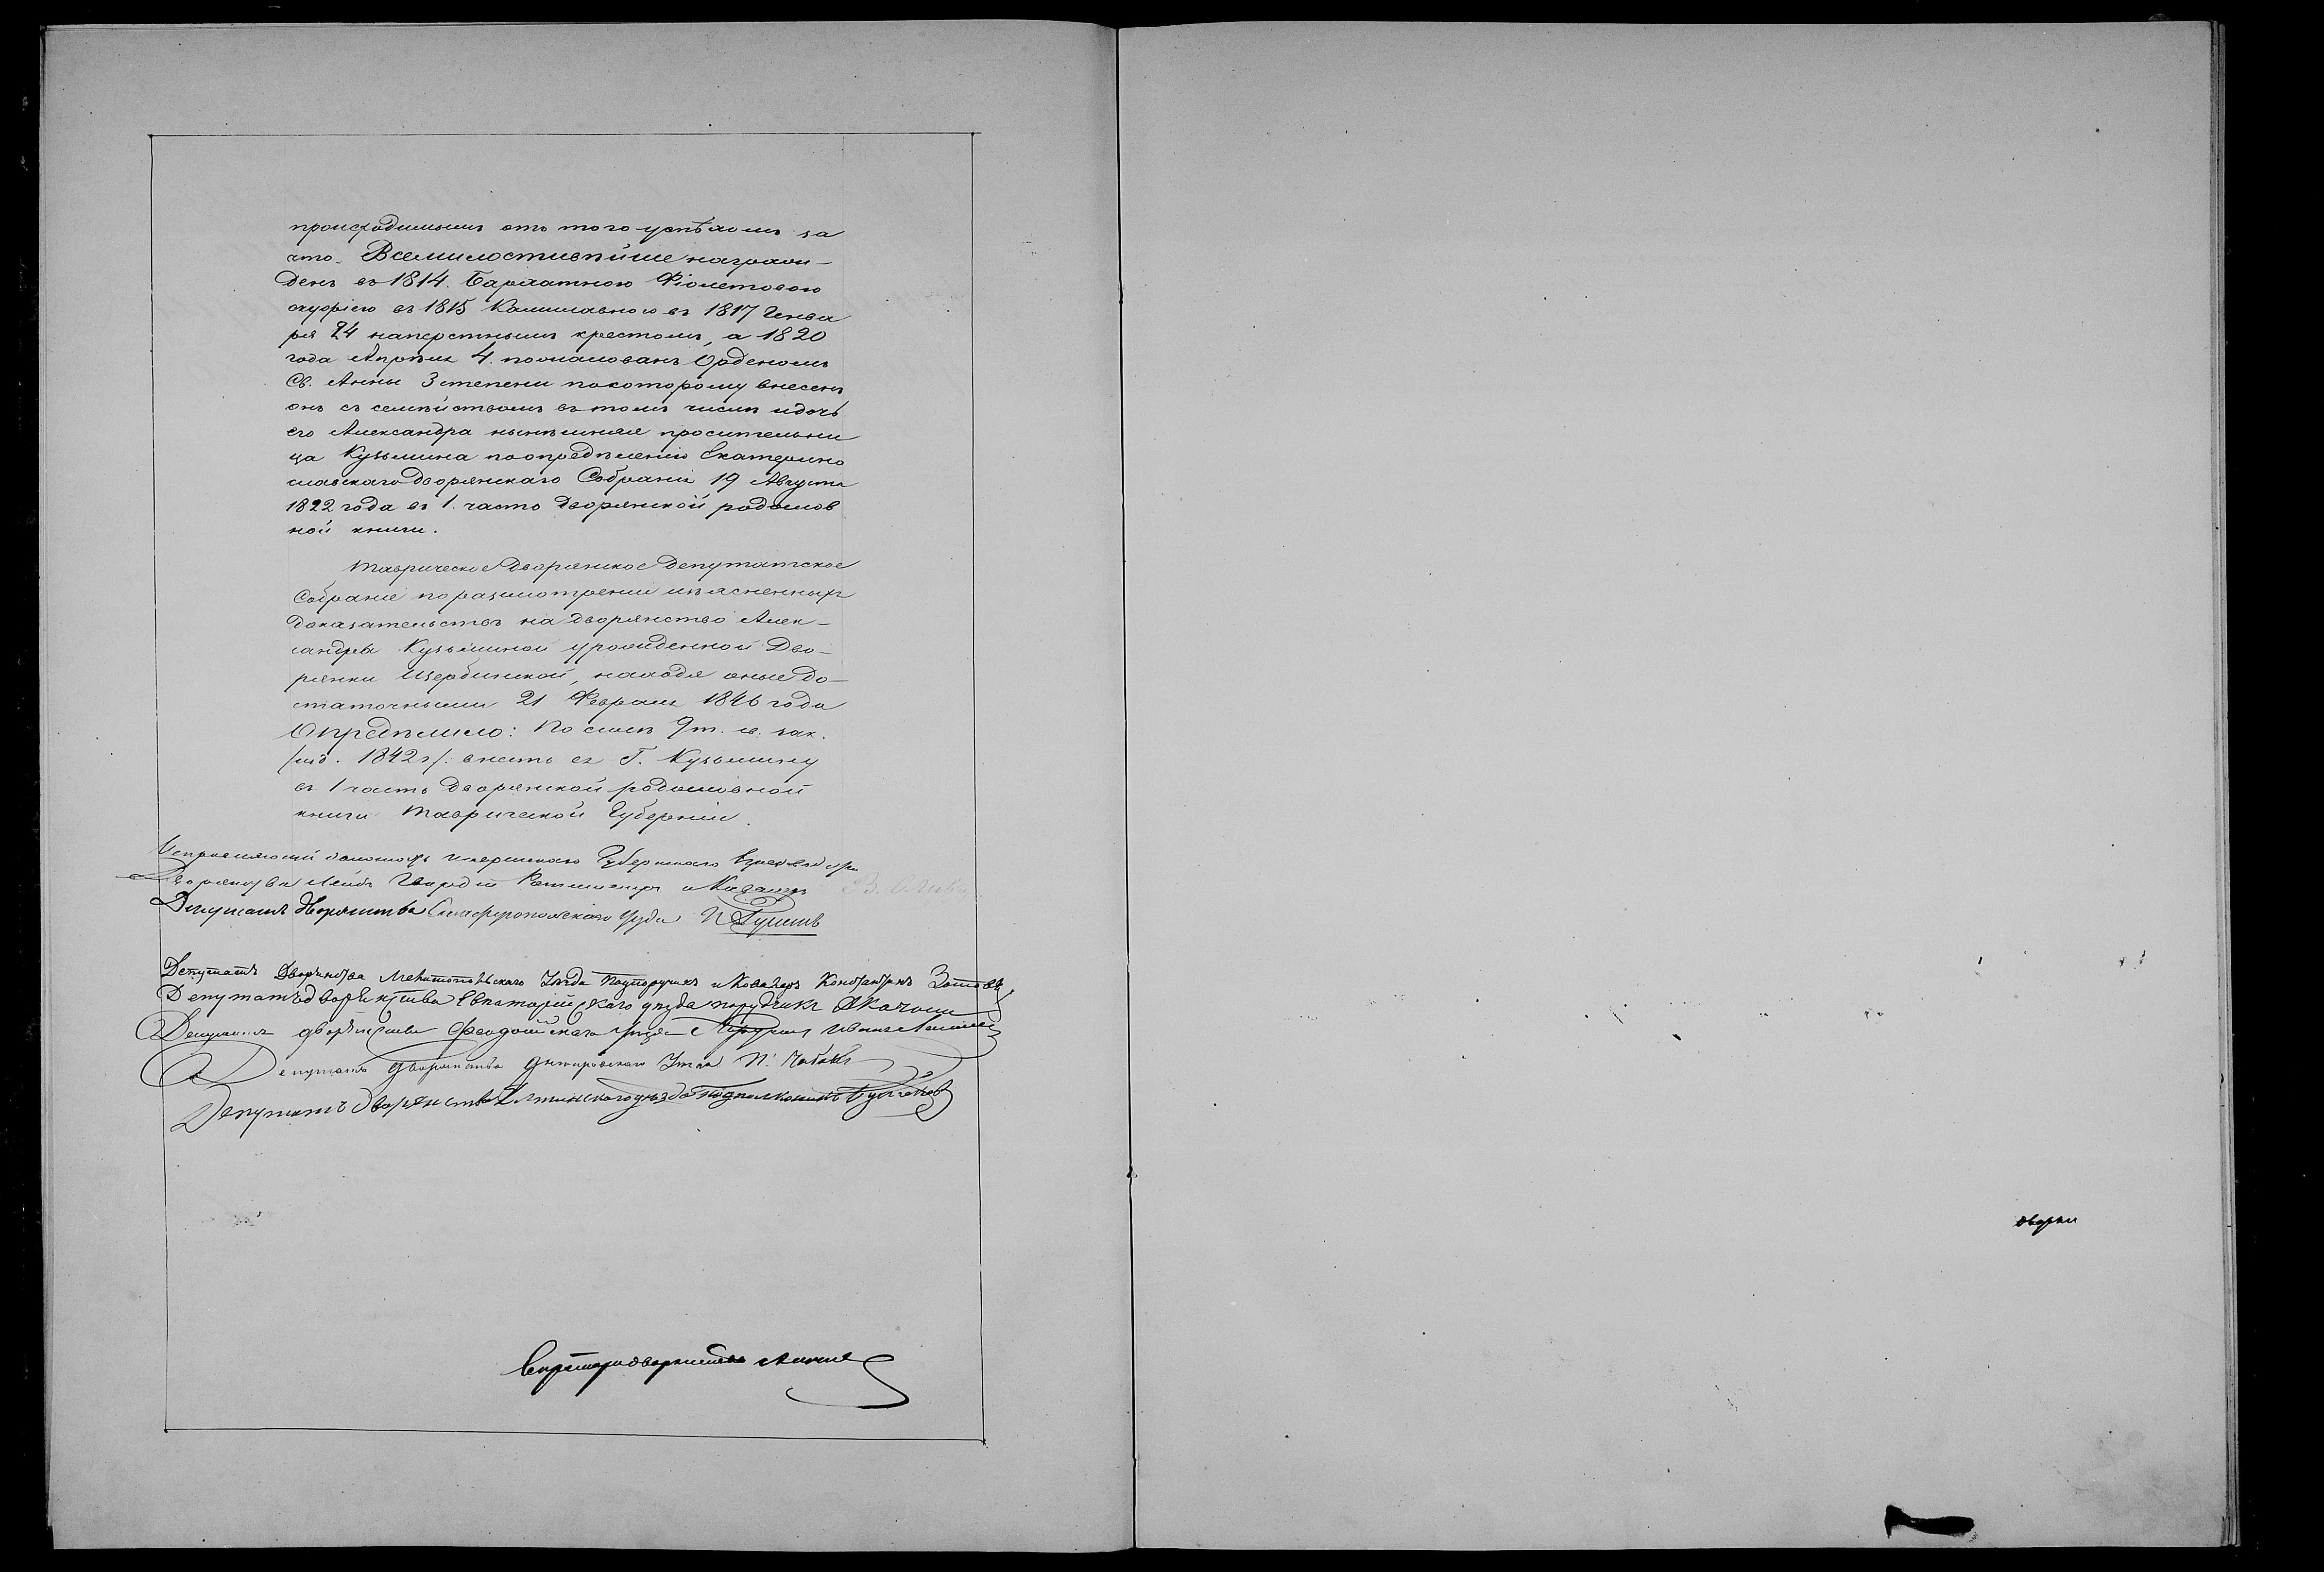 происходившимъ отъ того успѣхомъ за
что Всемилостивѣйше награж-
денъ въ 1814. Бархатною Фіолетовою
скуфіею въ 1815 Камилавкою въ 1817 Генва
ря 24 наперстнымъ крестомъ, а 1820
года Апрѣля 4. пожалованъ Орденомъ
Св. Анны 3 степени по которому внесенъ
онъ съ семѣйствомъ въ томъ числѣ и дочь
его Александра нынѣшняя просительни
ца Кузьмина по опредѣленію Екатерино
славскаго Дворянскаго Собранія 19 Августа
1822 года въ 1. часть Дворянской родослов
ной книги.
Таврическое Дворянское Депутатское
Собраніе по разсмотреніи изъясненныхъ
Доказательствъ на дворянство Алек-
сандры Кузьминой урожденной Дво-
рянки Щербинской, находя оные до-
статочными 21 Февраля 1846 года
Опредѣлило: По силѣ 9 т. св. зак.
/изд. 1842 г/. внесть ея Г. Кузьмину
въ 1 часть Дворянской родословной
книги Таврической Губерніи.
Исправляющій должность Губернскаго
Дворянства Лейбъ Гвардіи Ротмистръ и Кавалеръ
Депутатъ Дворянства Симферопольскаго Уѣзда
Депутатъ Дворянства Мелитопольскаго Уѣзда Подпоручикъ и Кавалеръ Константинъ Зотовъ
Депутатъ дворянства Евпаторійскаго уѣзда порудчикъ
Депутатъ дворянства Феодосійскаго Уѣзда
Депутатъ дворянства Днѣпровскаго Уѣзда
Депутатъ дворянства Ялтинскаго уѣзда Подполковникъ
Секретарь дворянства